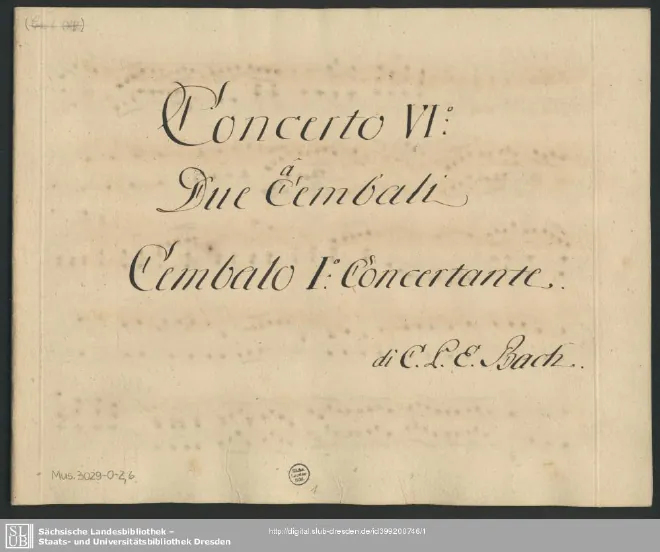 Concerto VI.º
à
Due Cembali
Cembalo I.º Concertante.
di C. P. E. Bach.
Mus. 3029-O-2,6
SLUB
Sächsische Landesbibliothek –
Staats- und Universitätsbibliothek Dresden
http://digital.slub-dresden.de/id399200746/1